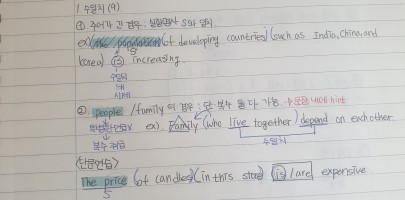 1. 수일치 (9)
① 주어가 긴 경우: 실질명사 S와 일치.
ex) The population (of developing countries) (such as India, China, and
S
korea) (is) increasing.
수일치
태
시제
② people / family 의 경우: 단 복수 둘 다 가능
ex) Family (who live together) depend on each other
→ 복수 취급
수일치
<단문연습>
The price (of candles) (in this store) (is / are) expensive
S